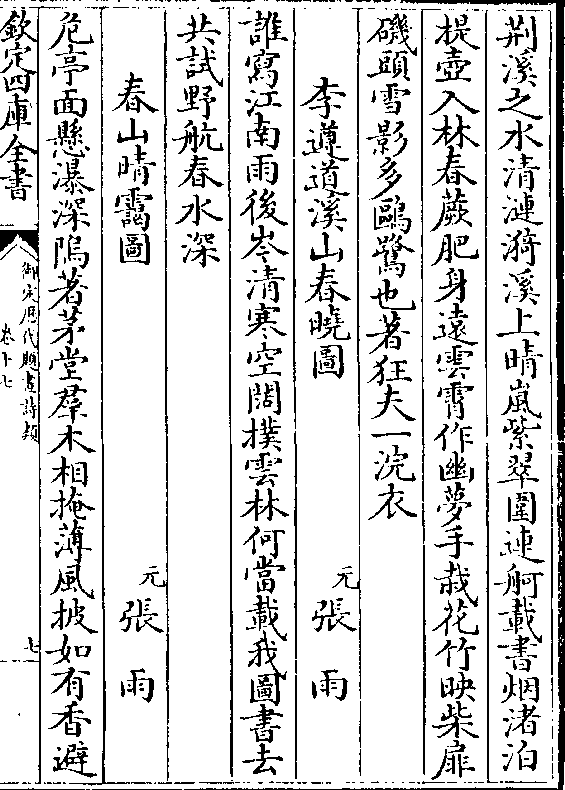 荆溪之水清漣漪溪上晴嵐紫翠圍連舸載書烟渚泊
提壺入林春蕨肥身遠雲霄作幽夢手栽花竹映柴扉
磯頭雪影多鷗鷺也著狂夫一浣衣
李遵道溪山春曉圖
元張雨
誰寫江南雨後岑清寒空闊撲雲林何當載我圖書去
共試野航春水深
春山晴靄圖
元張雨
危亭面懸瀑深隖著茅堂羣木相掩薄風披如有香避
欽定四庫全書
御定歷代題畫詩類
卷十七
七